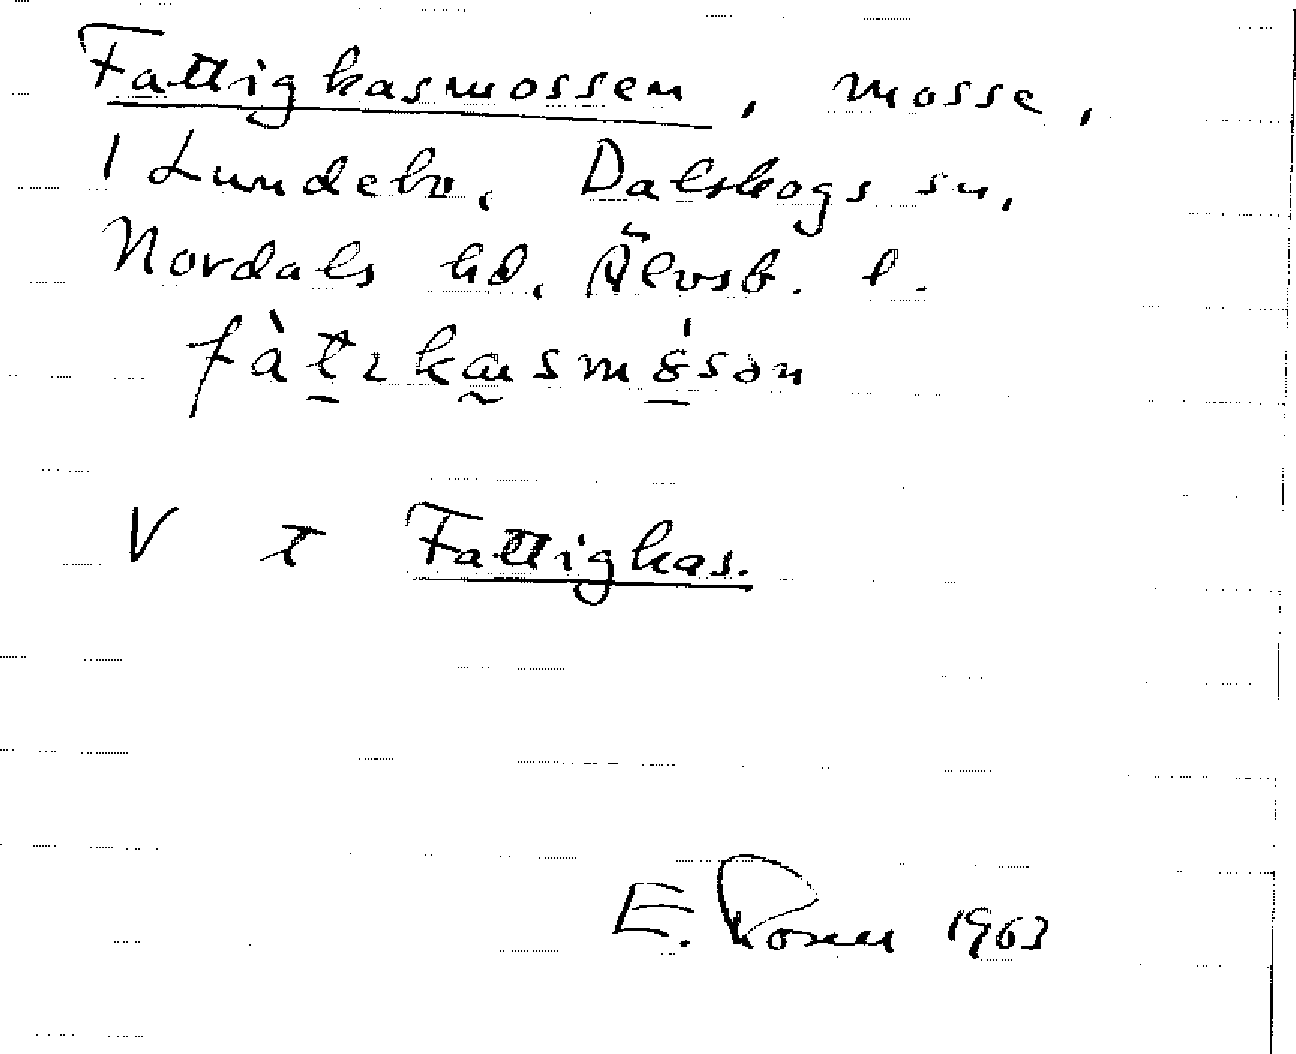 Fattighasmossen, mosse,
1 Lundebo, Dalskogs sn,
Nordals hd, Älvsb. l.
V t Fattighas.
E. Rosén 1963